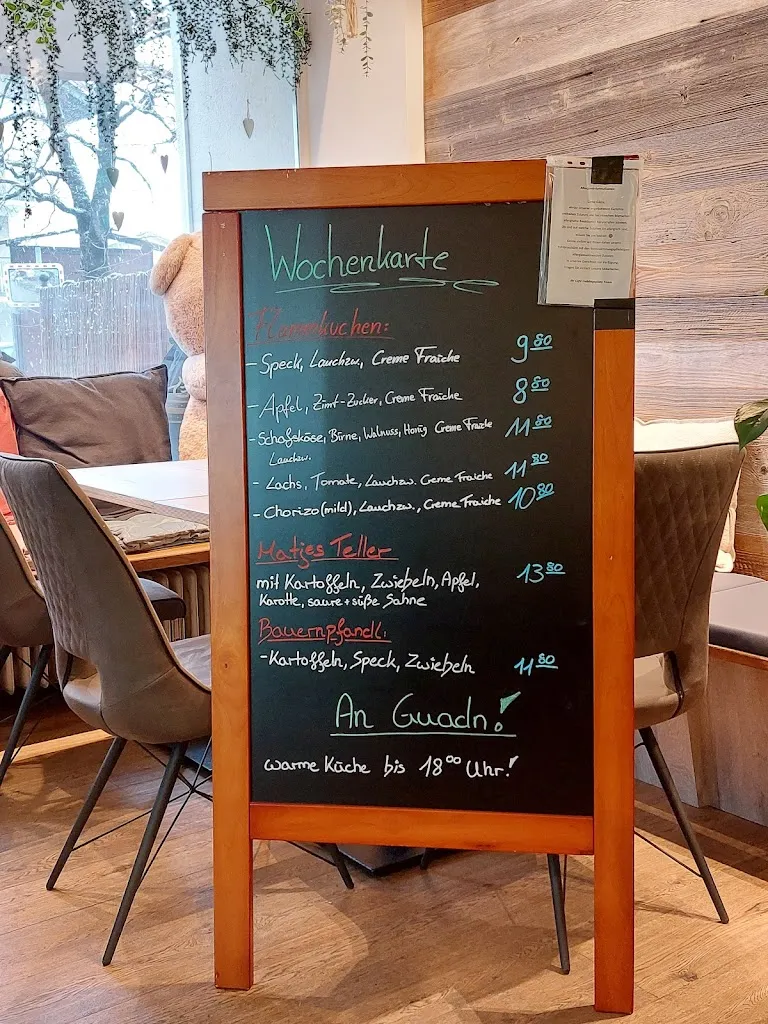 Wochenkarte
Flammkuchen:
- Speck, Lauchzw., Creme Fraiche 9 80
- Apfel, Zimt-Zucker, Creme Fraiche 8 80
- Schafskäse, Birne, Walnuss, Honig Creme Fraiche 11 80
Lauchzw.
- Lachs, Tomate, Lauchzw. Creme Fraiche 11 80
- Chorizo (mild), Lauchzw., Creme Fraiche 10 80
Matjes Teller
mit Kartoffeln, Zwiebeln, Apfel, 13 80
Karotte, saure + süße Sahne
Bauernpfandl:
- Kartoffeln, Speck, Zwiebeln 11 80
An Guadn!
warme Küche bis 18 00 Uhr!